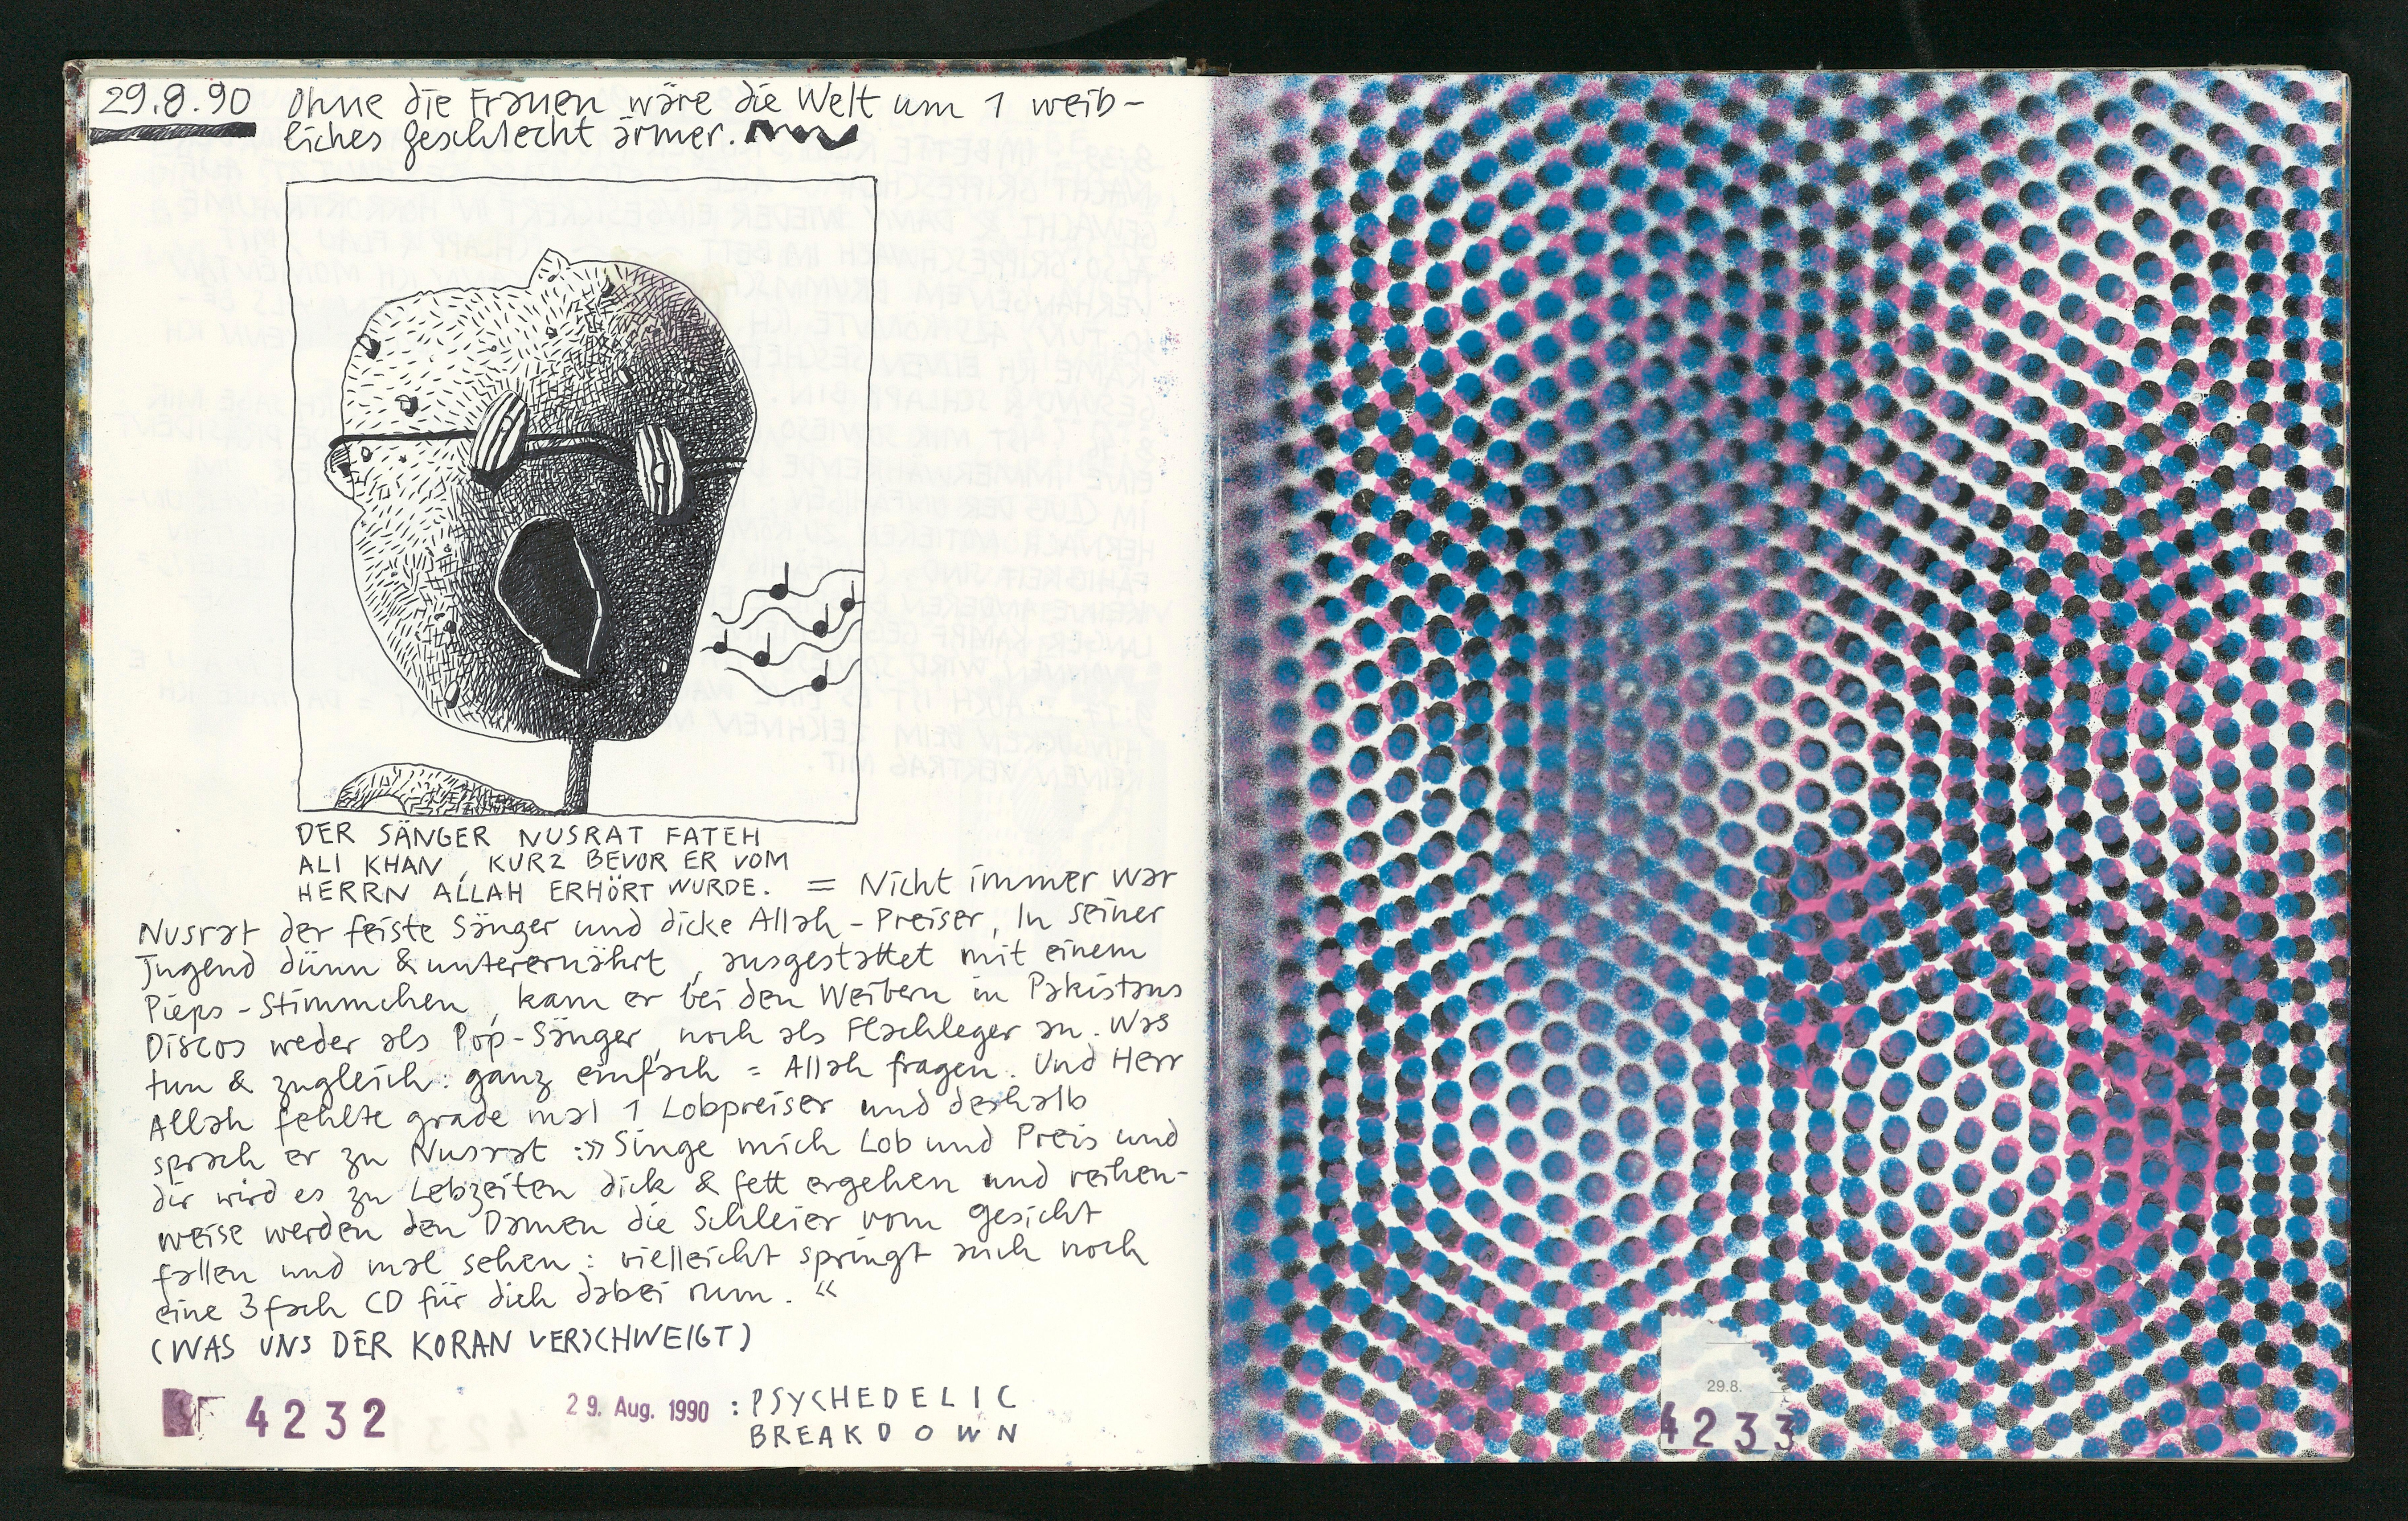 29.8.90 Ohne die Frauen wäre die Welt um 1 weib-
liches Geschlecht ärmer.
DER SÄNGER NUSRAT FATEH
ALI KHAN, KURZ BEVOR ER VOM
HERRN ALLAH ERHÖRT WURDE. = Nicht immer war
Nusrat der feiste Sänger und dicke Allah-Preiser, In seiner
Jugend dünn & unterernährt, ausgestattet mit einem
Pieps-Stimmchen, kam er bei den Weibern in Pakistans
Discos weder als Pop-Sänger, noch als Flachleger an. Was
tun & zugleich: ganz einfach = Allah fragen. Und Herr
Allah fehlte grade mal 1 Lobpreiser und deshalb
sprach er zu Nusrat :»Singe mich Lob und Preis und
dir wird es zu Lebzeiten dick & fett ergehen und reihen-
weise werden den Damen die Schleier vom Gesicht
fallen und mal sehen: vielleicht springt auch noch
eine 3fach CD für dich dabei rum.«
(WAS UNS DER KORAN VERSCHWEIGT)
4232 29. Aug. 1990 : PSYCHEDELIC
BREAKDOWN
29.8.
4233